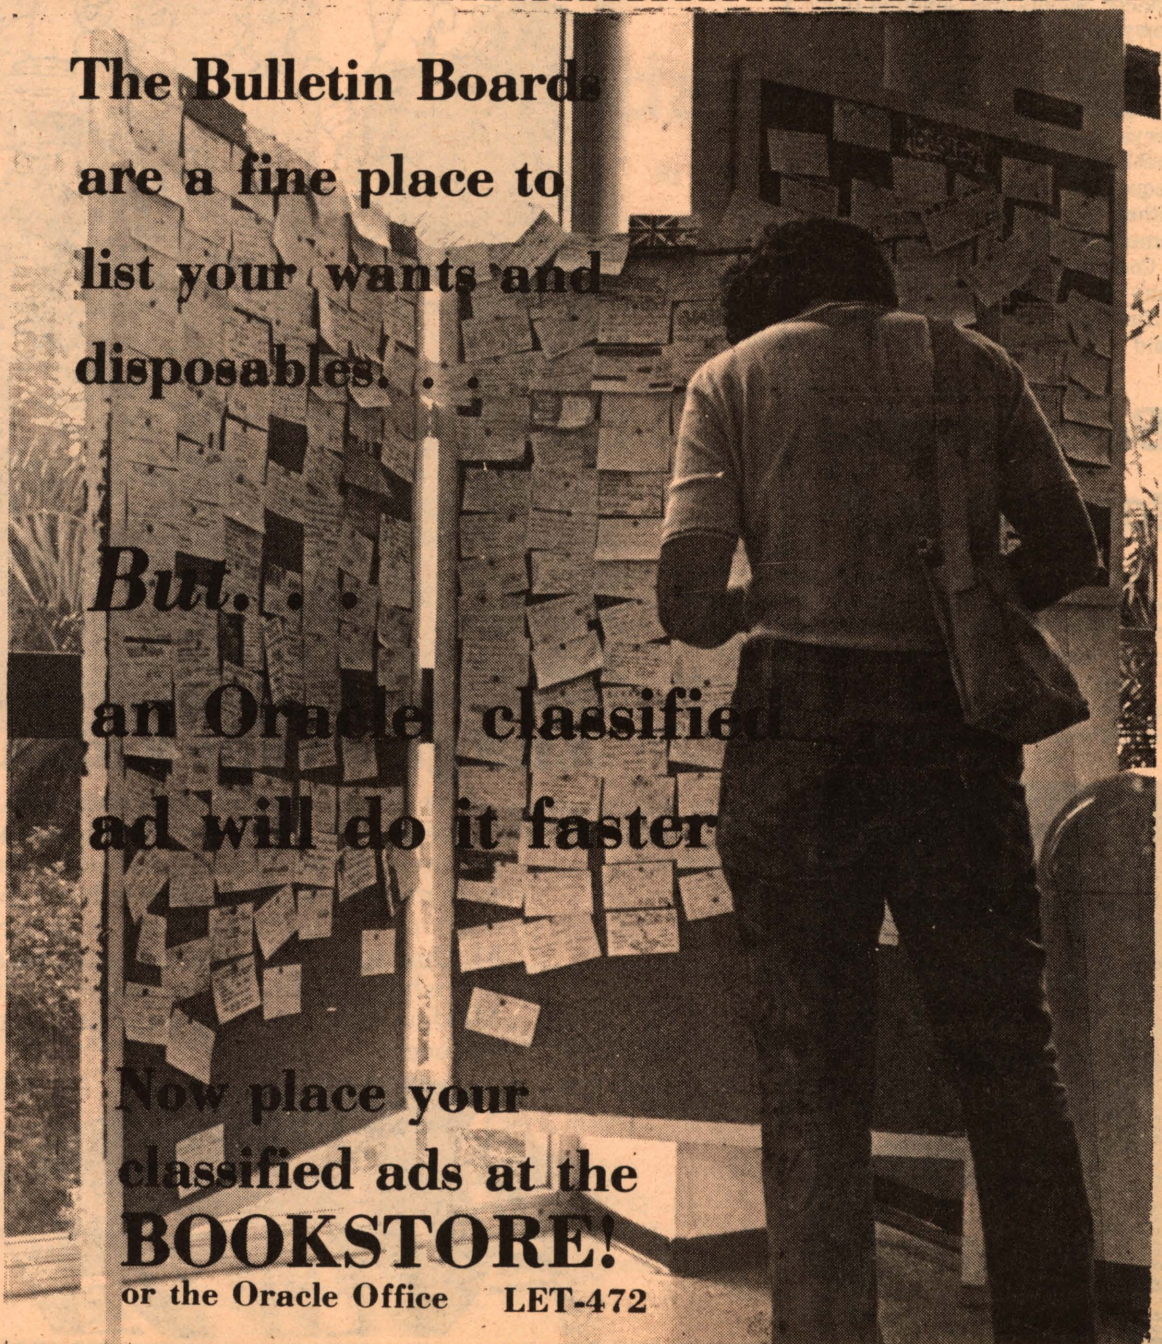 The Bulletin Boards
are a fine place to
list your wants and
disposables. . .
But. . .
an Oracle classified
ad will do it faster
Now place your
classified ads at the
BOOKSTORE!
or the Oracle Office LET-472